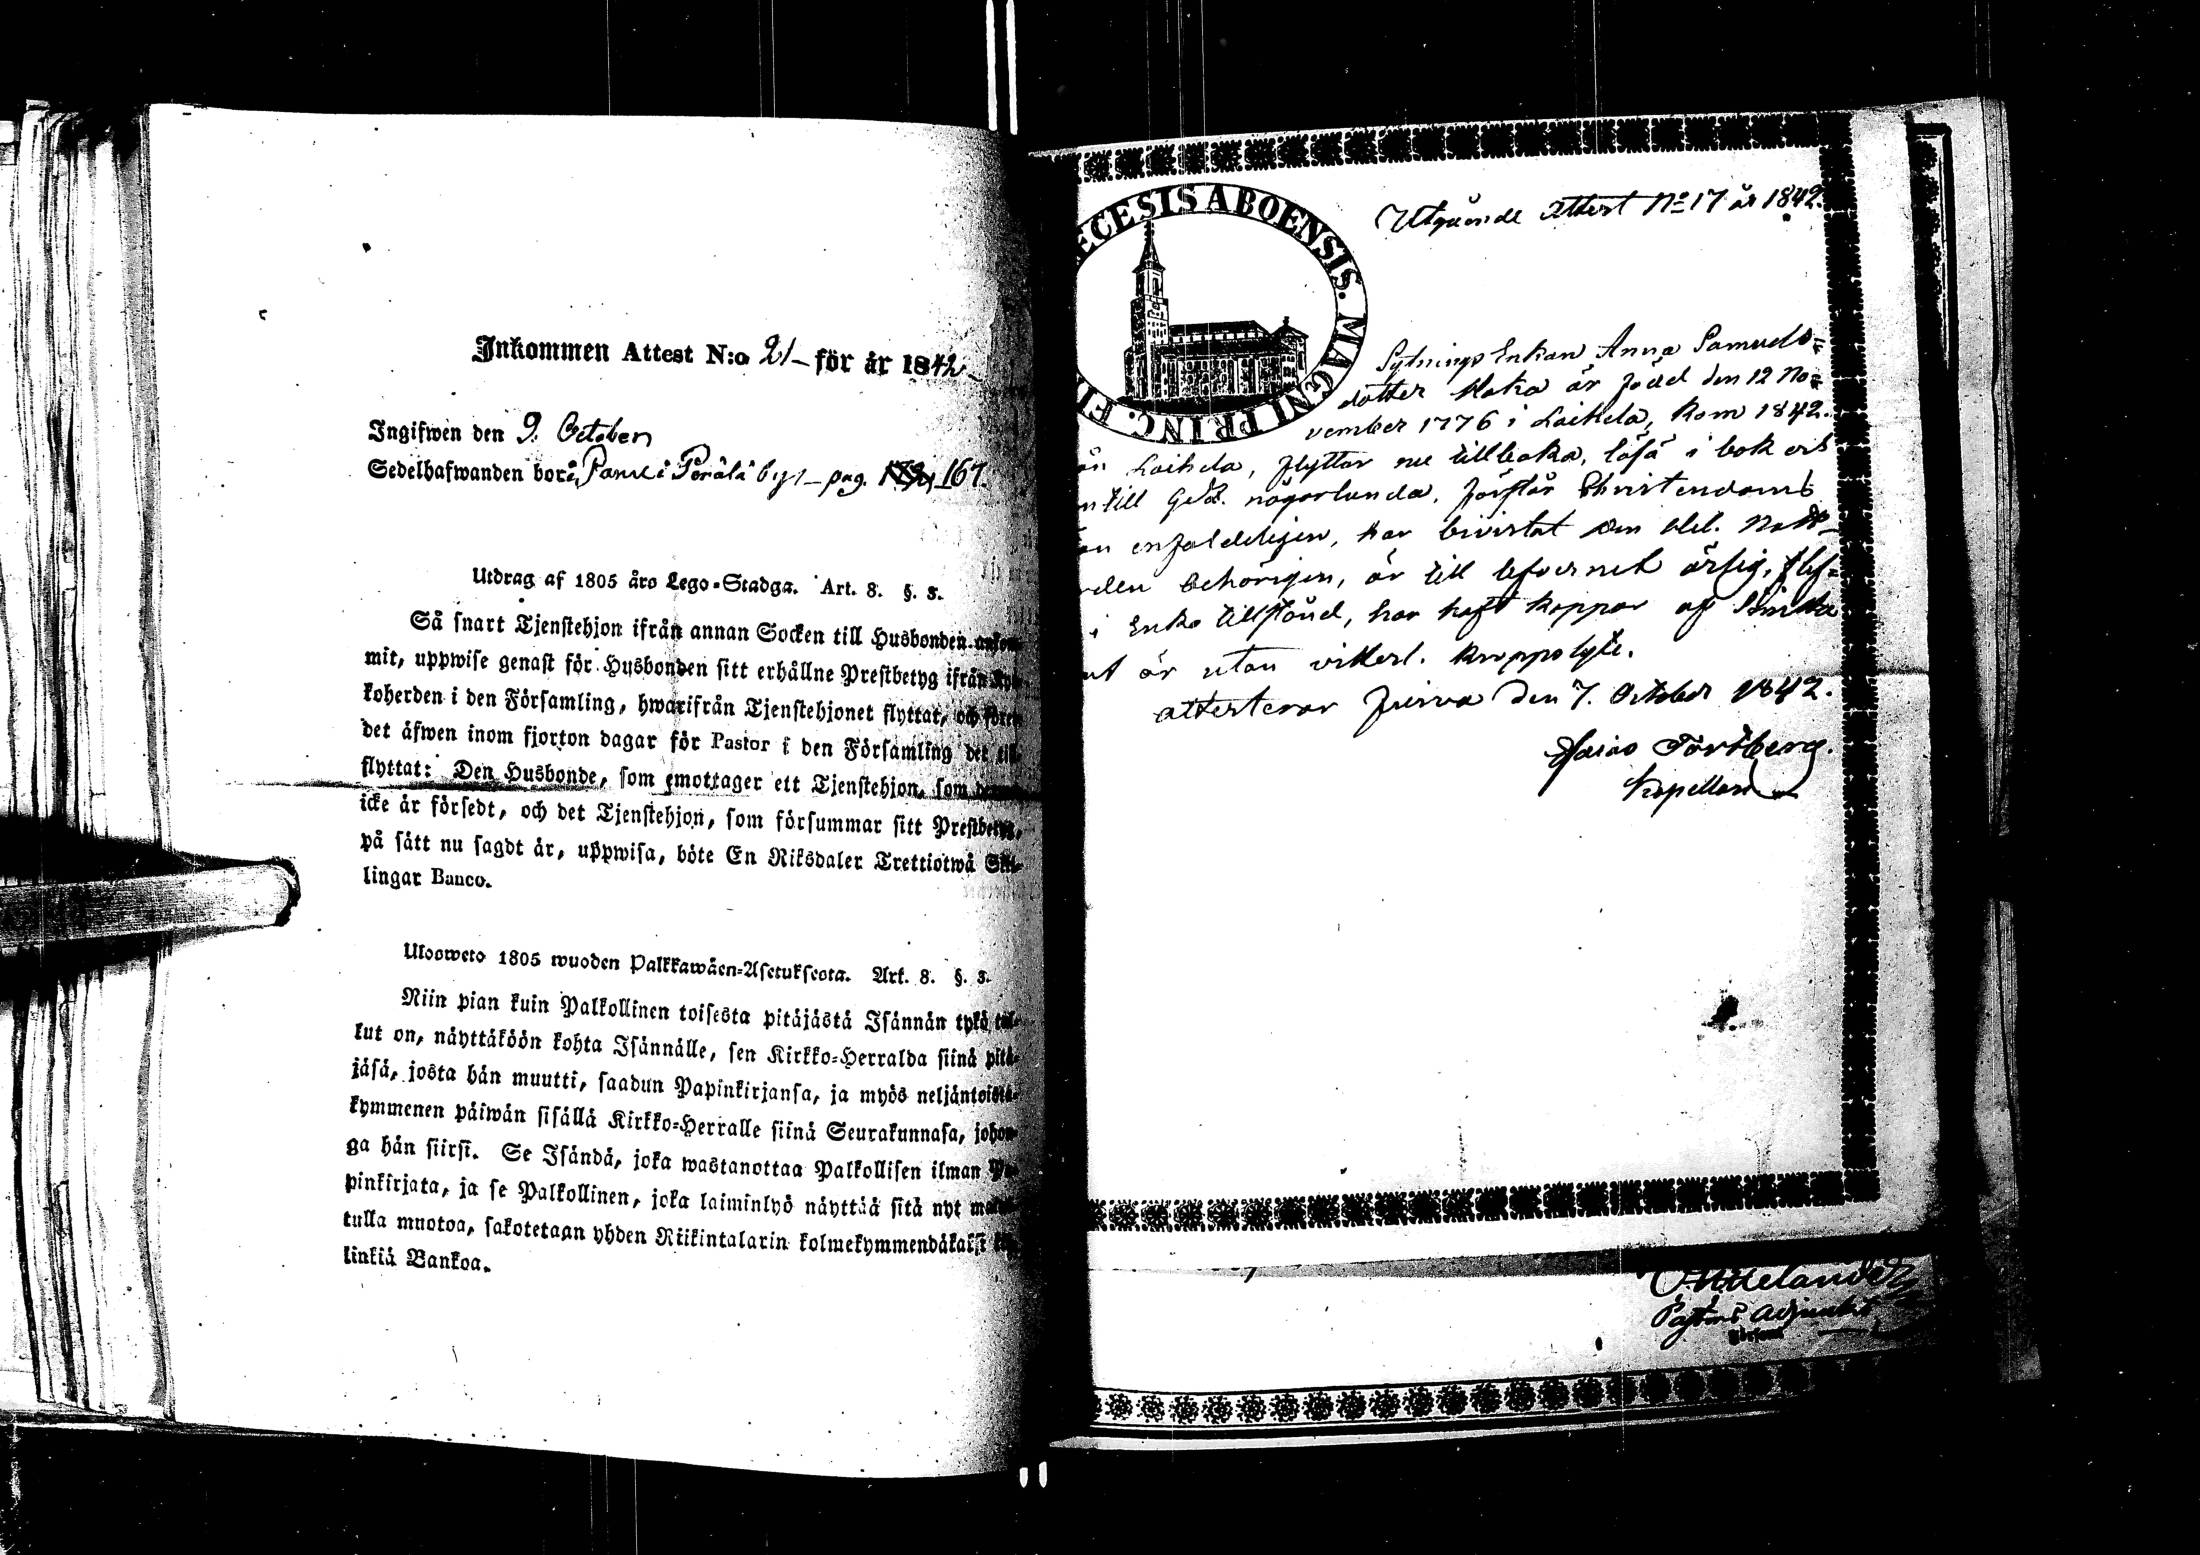 Inkommen Attest N:o 21 – för år 1842
Ingifwen den 9. October
Sedelhafwanden bor i Perälä by – pag. 167.
Utdrag af 1805 års Lego-Stadga. Art. 8. §. 3.
Så snart Tjenstehjon ifrån annan Socken till Husbonden
mit, uppwise genast för Husbonden sitt erhållne Prestbetyg ifrån
koherden i den Församling, hwarifrån Tjenstehjonet flyttat, och
det äfwen inom fjorton dagar för Pastor i den Församling det
flyttat: Den Husbonde, som emottager ett Tjenstehjon, som
icke är försedt, och det Tjenstehjon, som försummar sitt Prestbetyg,
på sätt nu sagdt är, uppwisa, böte En Riksdaler Trettiotwå Skil-
lingar Banco.
Ulosweto 1805 wuoden Palkkawäen-Asetuksesta. Art. 8. §. 3.
Niin pian kuin Palkollinen toisesta pitäjästä Isännän tykö tul-
lut on, näyttäköön kohta Isännälle, sen Kirkko-Herralda siinä pitä-
jäsä, josta hän muutti, saadun Papinkirjansa, ja myös neljäntoista-
kymmenen päiwän sisällä Kirkko-Herralle siinä Seurakunnasa, johon-
ga hän siirsi. Se Isändä, joka wastanottaa Palkollisen ilman Pa-
pinkirjata, ja se Palkollinen, joka laiminlyö näyttää sitä nyt
tulla muotoa, sakotetaan yhden Riikintalarin kolmekymmendäkaksi
linkiä Bankoa.
ECESIS ABOENSIS. MAGNI PRINC. FI
Utgående Attest No 17 år 1842.
Sytnings Enkan Anna Samuels-
dotter Koka är född den 12 No-
vember 1776 i Laihela, kom 1842.
ån Laihela, flyttar nu tillbaka, läsa i bok och
till någorlunda, förstår Christendoms
enfaldeligen, har bivistat den
behörigen, är till lefvernet ärlig,
i Enko tillstånd, har haft koppor
är utan vitterl. kroppslyte.
attesterar Jurva den 7. October 1842.
Esaias Forsberg.
Kapellan
Pastors Adjunkt